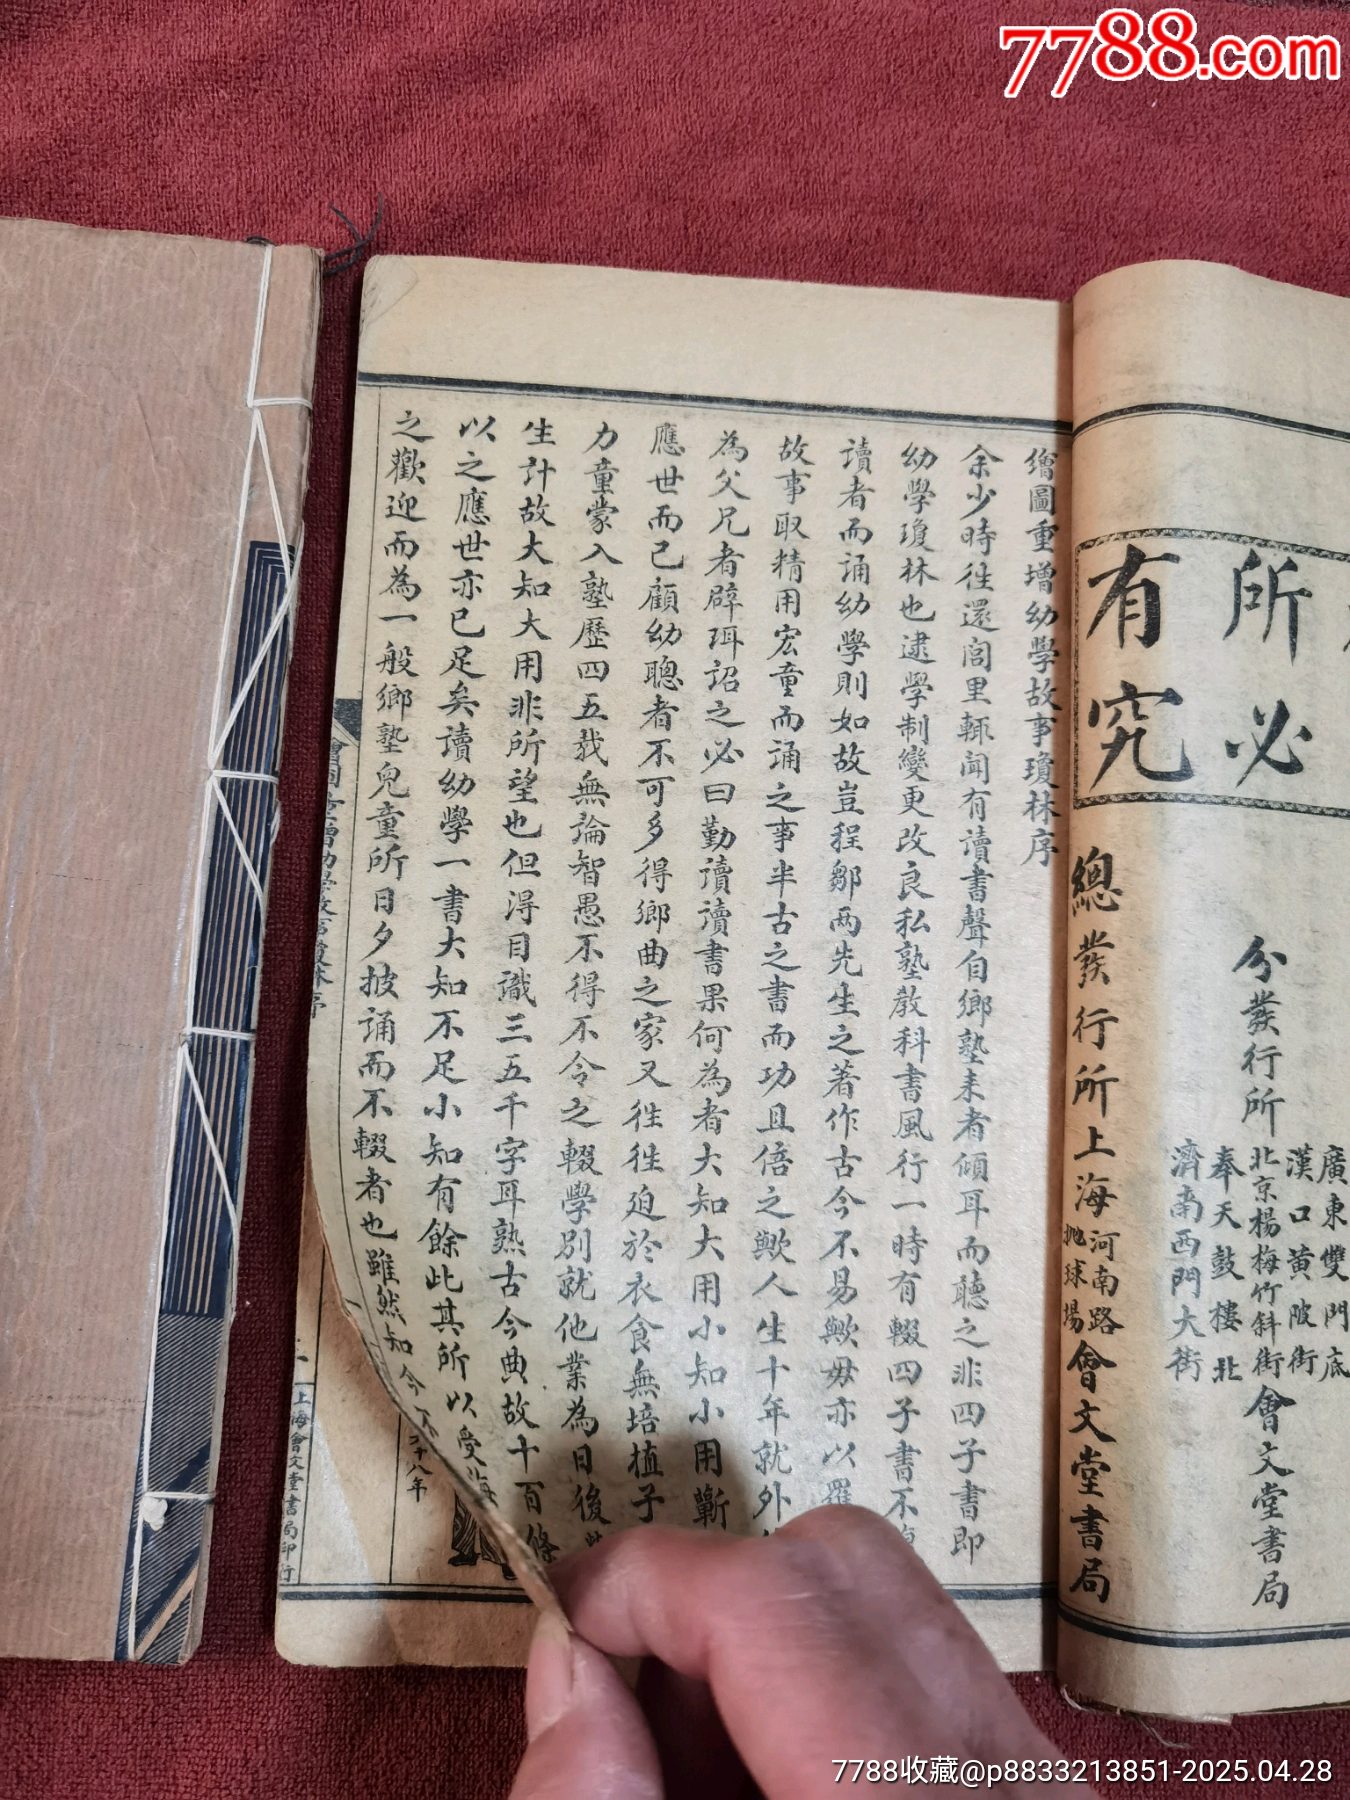 7788.com
有究
所必
廣東雙門底
漢口黃陂街
北京楊梅竹斜街
奉天鼓樓北
濟南西門大街
分發行所
會文堂書局
總發行所上海
河南路
拋球場
會文堂書局
繪圖重增幼學故事瓊林序
余少時往還閭里輒聞有讀書聲自鄉塾來者傾耳而聽之非四子書即
幼學瓊林也逮學制變更改良私塾教科書風行一時有輟四子書不
讀者而誦幼學則如故豈程鄒兩先生之著作古今不易歟毋亦以羅
故事取精用宏童而誦之事半古之書而功且倍之歟人生十年就外
為父兄者辟珥詔之必曰勤讀讀書果何為者大知大用小知小用蘄
應世而已顧幼聰者不可多得鄉曲之家又往往迫於衣食無培植子
力童蒙入塾歷四五栽無論智愚不得不令之輟學別就他業為日後
生計故大知大用非所望也但得目識三五千字耳熟古今典故十百條
以之應世亦已足矣讀幼學一書大知不足小知有餘此其所以受海
之歡迎而為一般鄉塾兒童所日夕披誦而不輟者也雖然知今
二十八年
繪圖重增幼學故事瓊林序
上海會文堂書局印行
7788收藏@p8833213851-2025.04.28